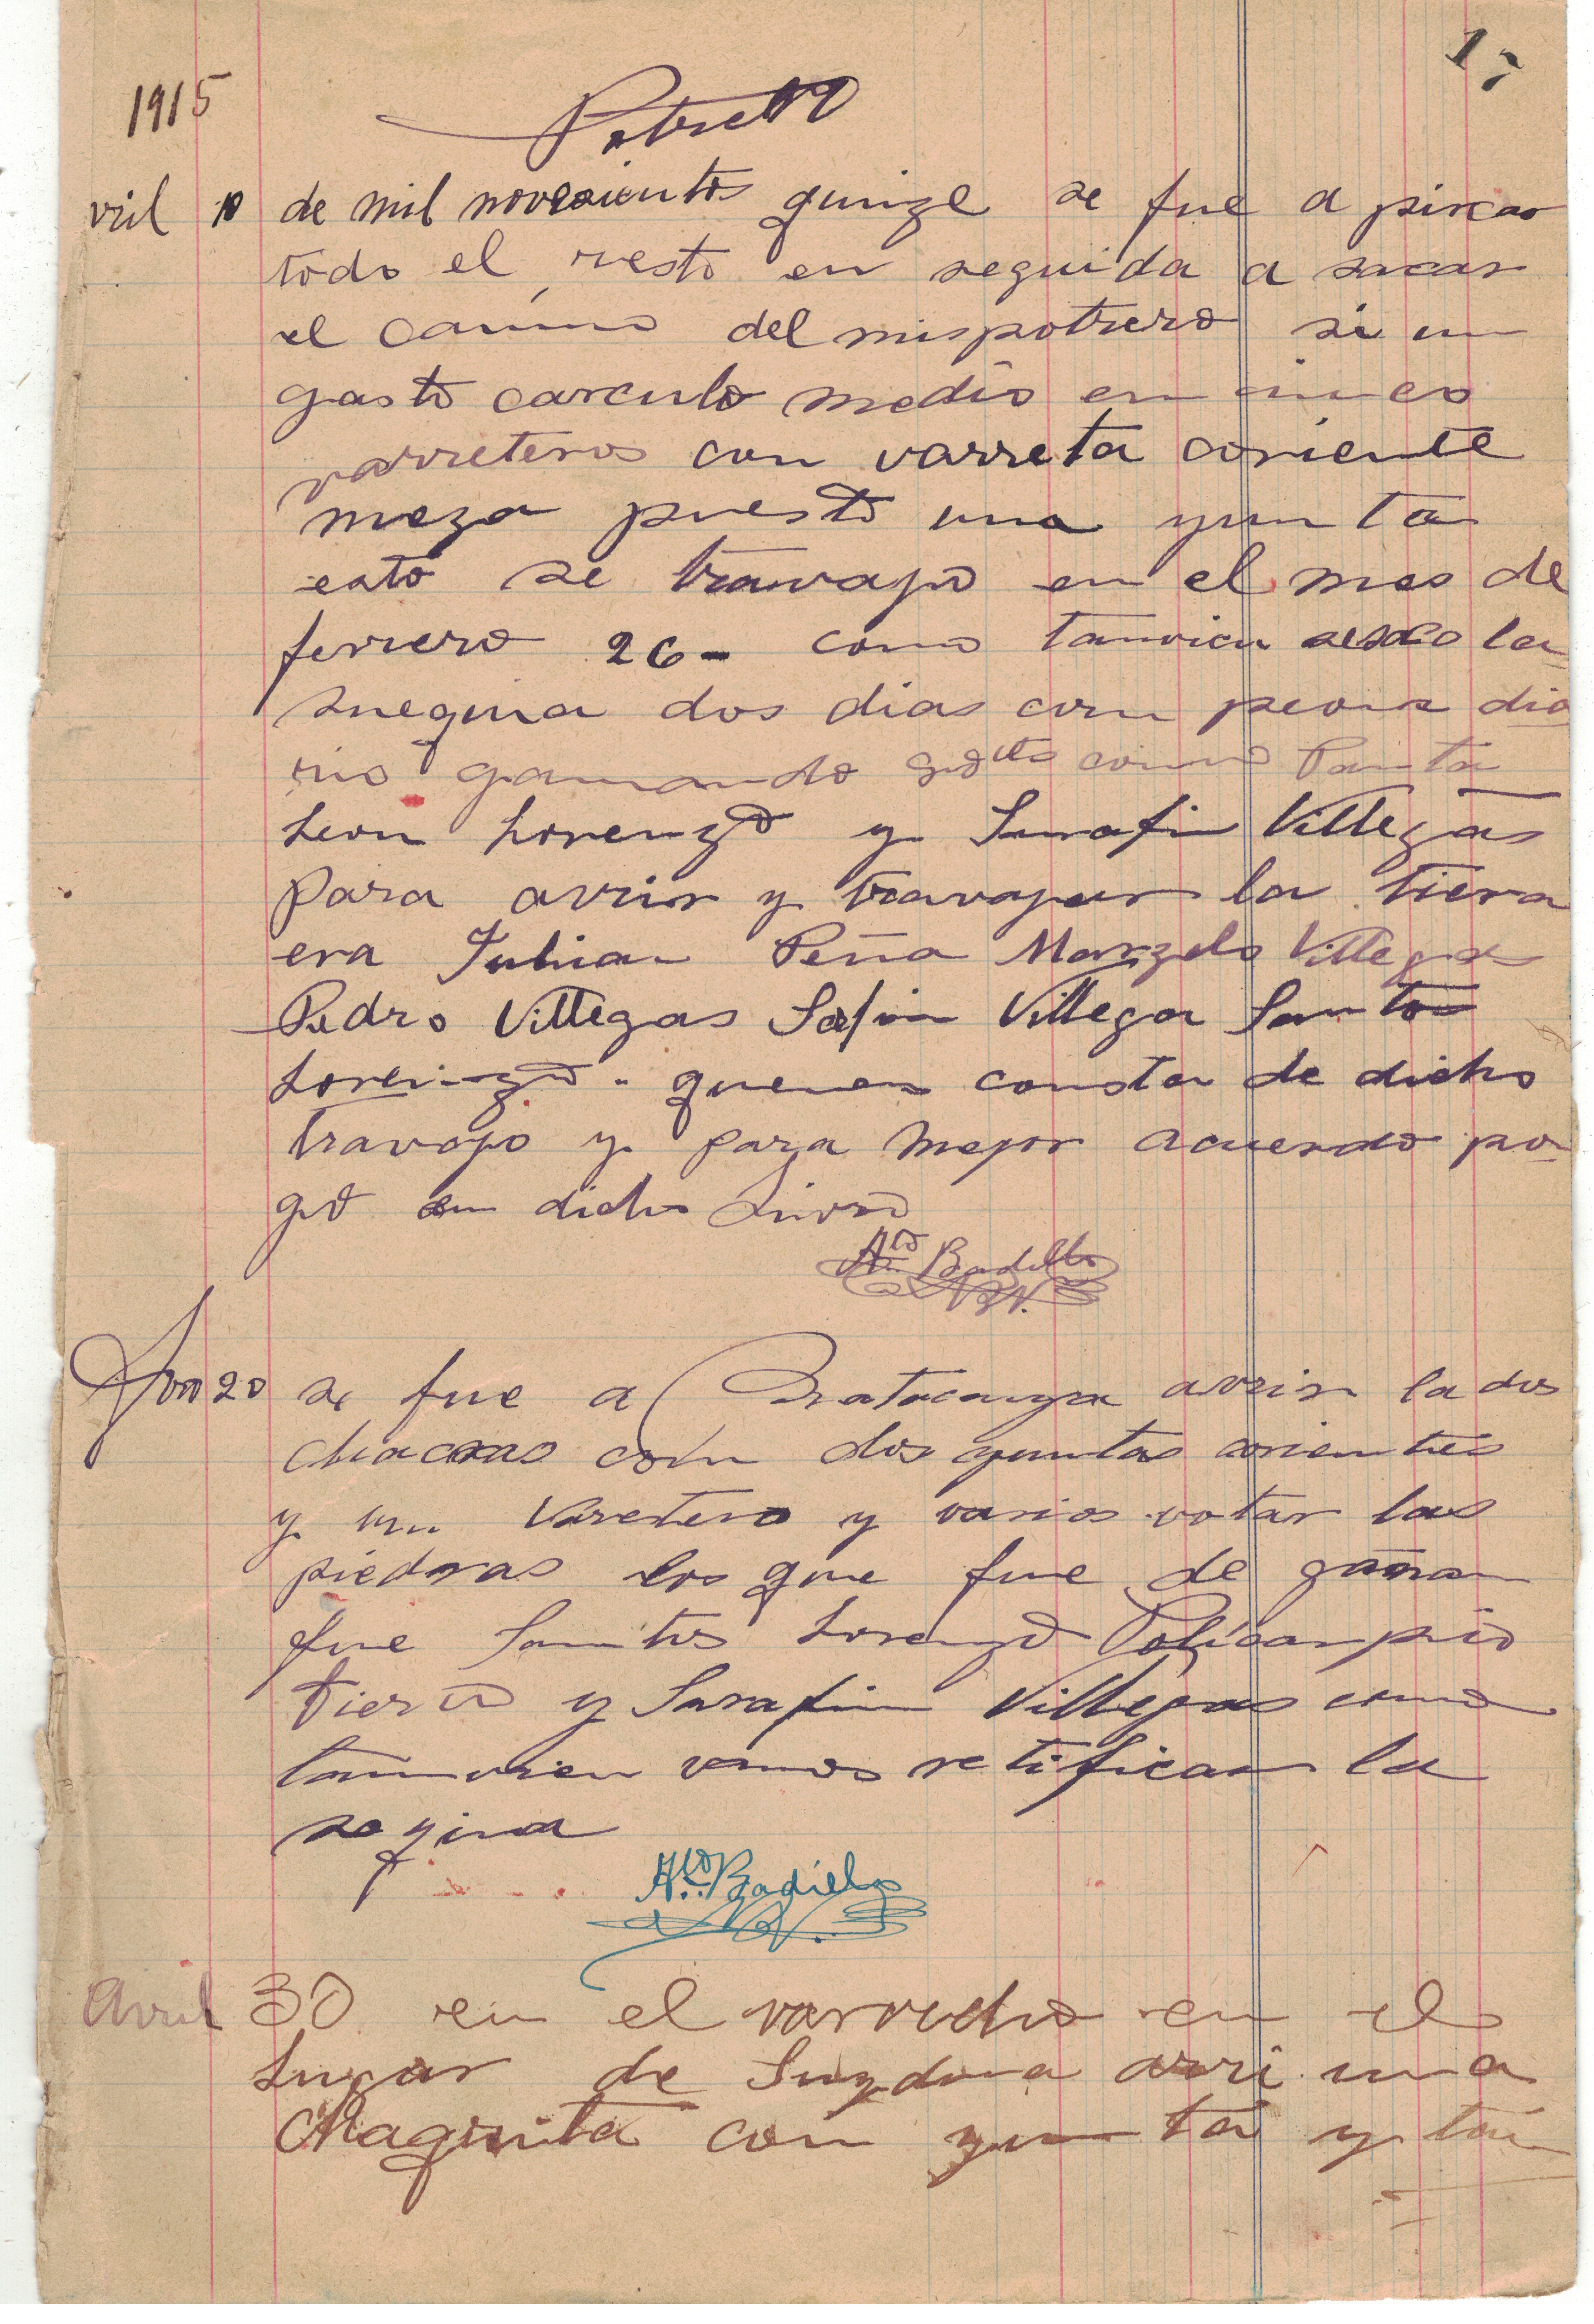 17
1915
Potrero
vril 10 de mil novesientos quinze se fue a pircar
todo el resto en seguida a sacar
el camino del mispotrero si un
gasto carculo medio en cinco
varreteros con varreta coriente
meza puesto una yunta
esto se travajo en el mes de
ferrero 26- como tamvien
snequia dos dias con peons dia
rio ganando como Panta
Leon Lorenzo y Serafin Villegas
Para avrir y travajar la tiera
era Julian Peña Marzelo Villegas
Pedro Villegas Safin Villegas Santos
Lorenzo. quenes consta de dicho
travajo y para mejor acuerdo po-
go en dicho Livro
Ado Badillo
20 se fue a avrir la dos
chacras con dos yuntas corientes
y un Varetero y varios votar las
piedras los que fue de gañan
fue Santos Lorenzo Policarpio
Tierro y Sarafin Villegas como
tamvien vamos retificar la
seqina
Ado Badillo
Avril 30 en el varvecho en el
Lugar de avri una
Chaquita con yunta y tan